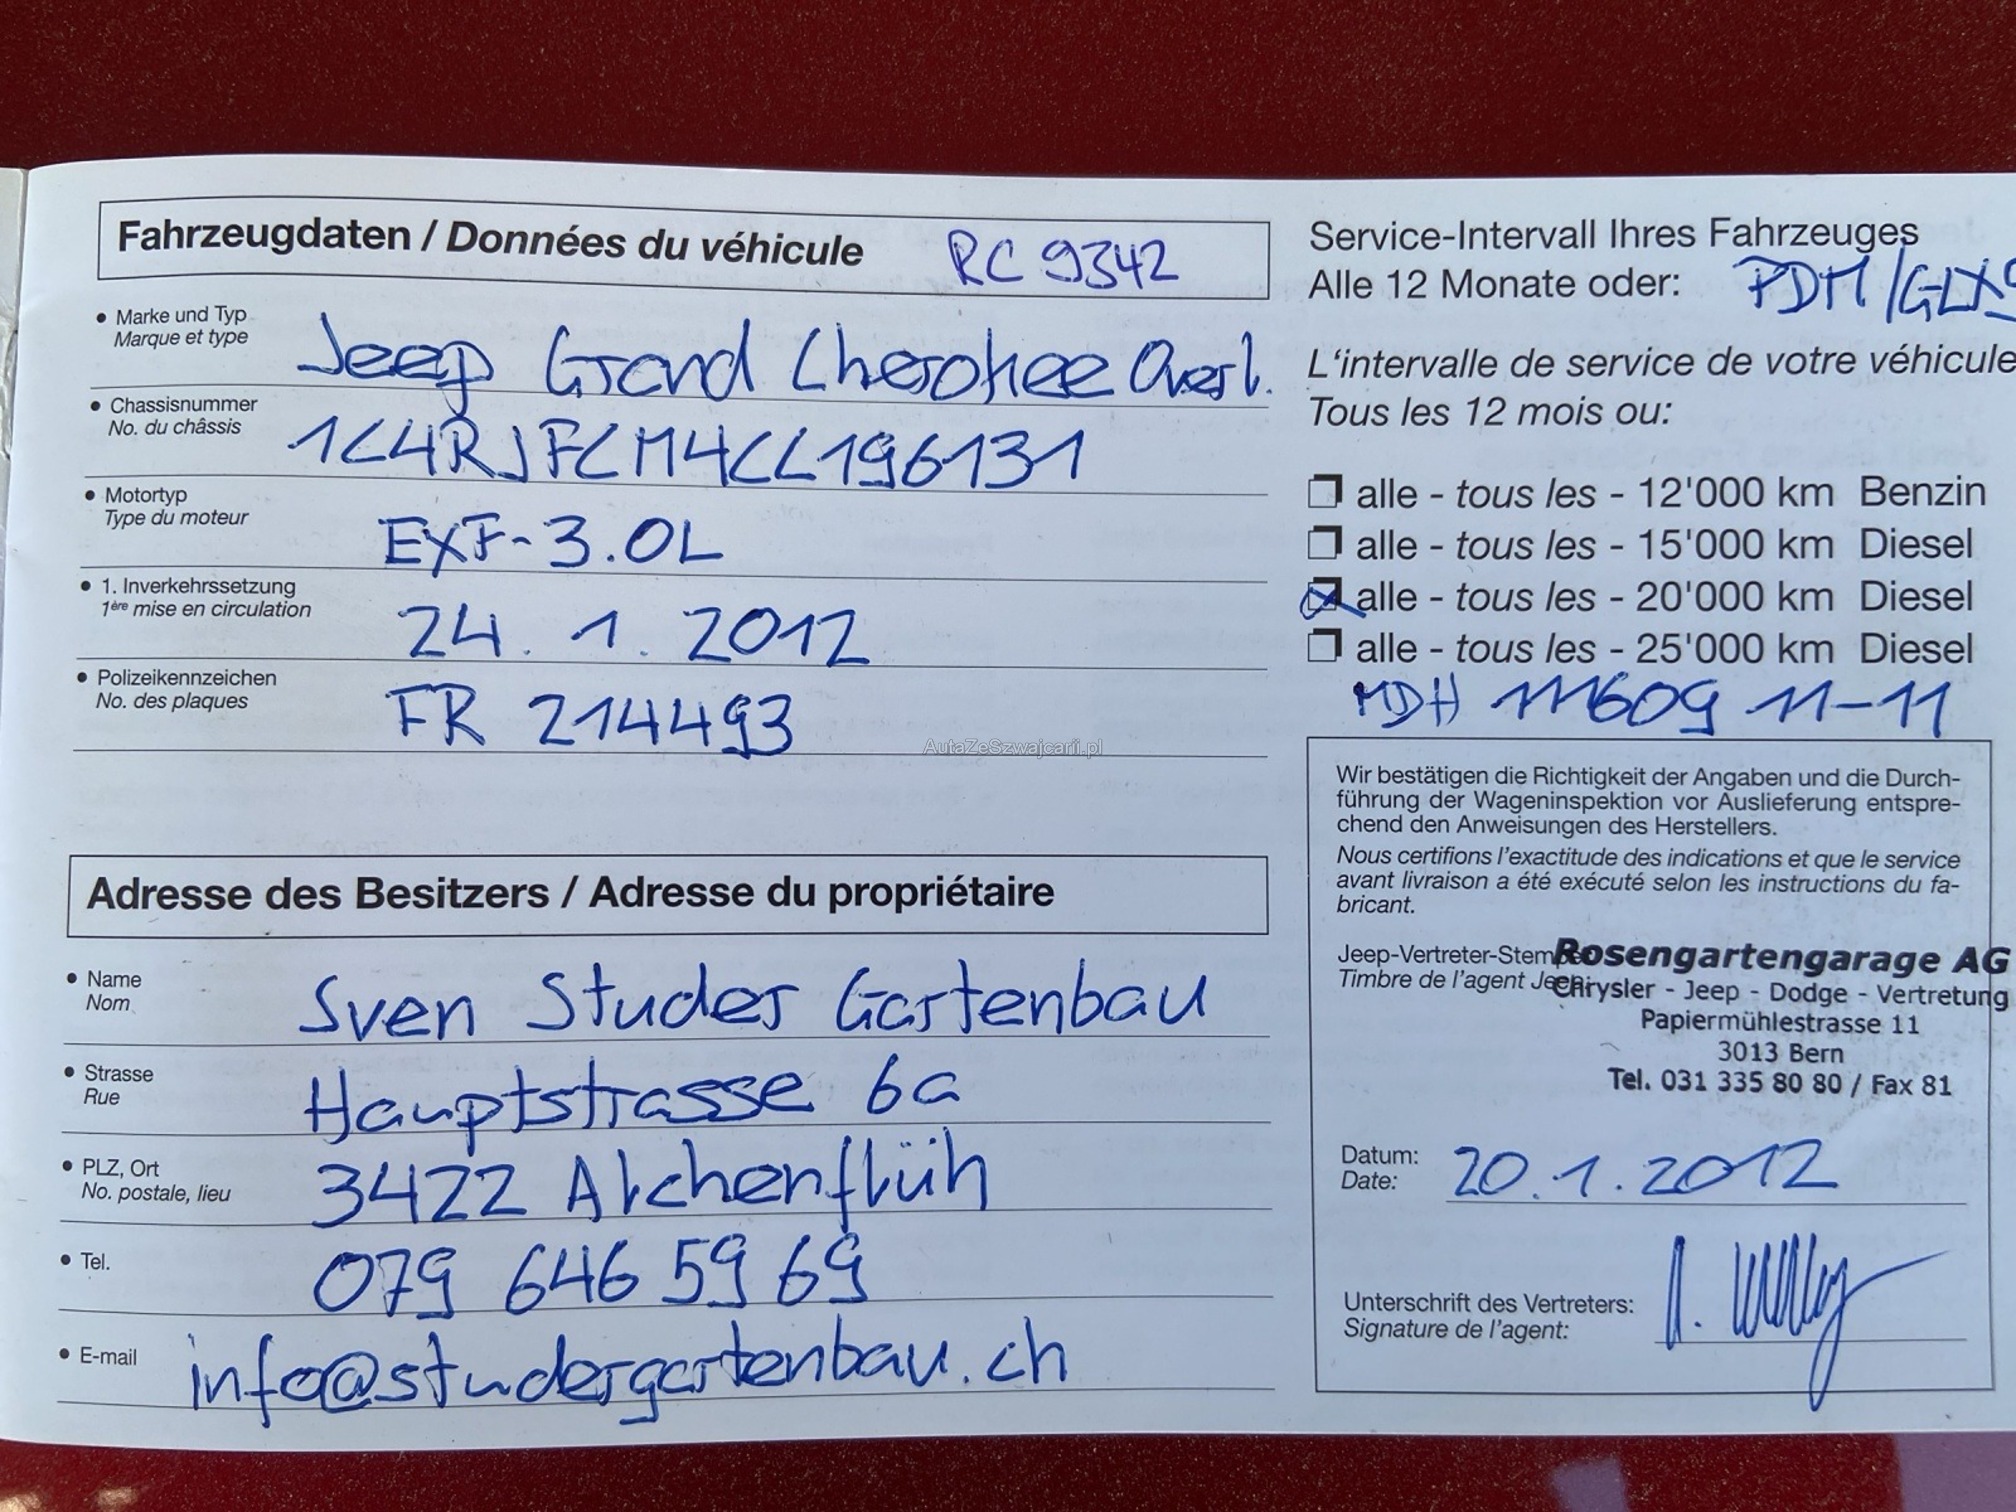 Fahrzeugdaten / Données du véhicule RC 9342
• Marke und Typ
Marque et type
Jeep Grand Cherokee Overl.
• Chassisnummer
No. du châssis
1C4RJFCM4CC196131
• Motortyp
Type du moteur
EXF-3.0L
• 1. Inverkehrssetzung
1ère mise en circulation
24. 1. 2012
• Polizeikennzeichen
No. des plaques
FR 214493
Adresse des Besitzers / Adresse du propriétaire
• Name
Nom
Sven Studer Gartenbau
• Strasse
Rue
Hauptstrasse 6a
• PLZ, Ort
No. postale, lieu
3422 Alchenflüh
• Tel.
079 646 59 69
• E-mail
info@studergartenbau.ch
Service-Intervall Ihres Fahrzeuges
Alle 12 Monate oder:
L'intervalle de service de votre véhicule
Tous les 12 mois ou:
alle - tous les - 12'000 km Benzin
alle - tous les - 15'000 km Diesel
alle - tous les - 20'000 km Diesel
alle - tous les - 25'000 km Diesel
MDH 111609 11-11
Wir bestätigen die Richtigkeit der Angaben und die Durch-
führung der Wageninspektion vor Auslieferung entspre-
chend den Anweisungen des Herstellers.
Nous certifions l'exactitude des indications et que le service
avant livraison a été exécuté selon les instructions du fa-
bricant.
Jeep-Vertreter-Stempel
Timbre de l'agent Jeep
Rosengartengarage AG
Chrysler - Jeep - Dodge - Vertretung
Papiermühlestrasse 11
3013 Bern
Tel. 031 335 80 80 / Fax 81
Datum:
Date:
20.1.2012
Unterschrift des Vertreters:
Signature de l'agent:
AutaZeSzwajcarii.pl